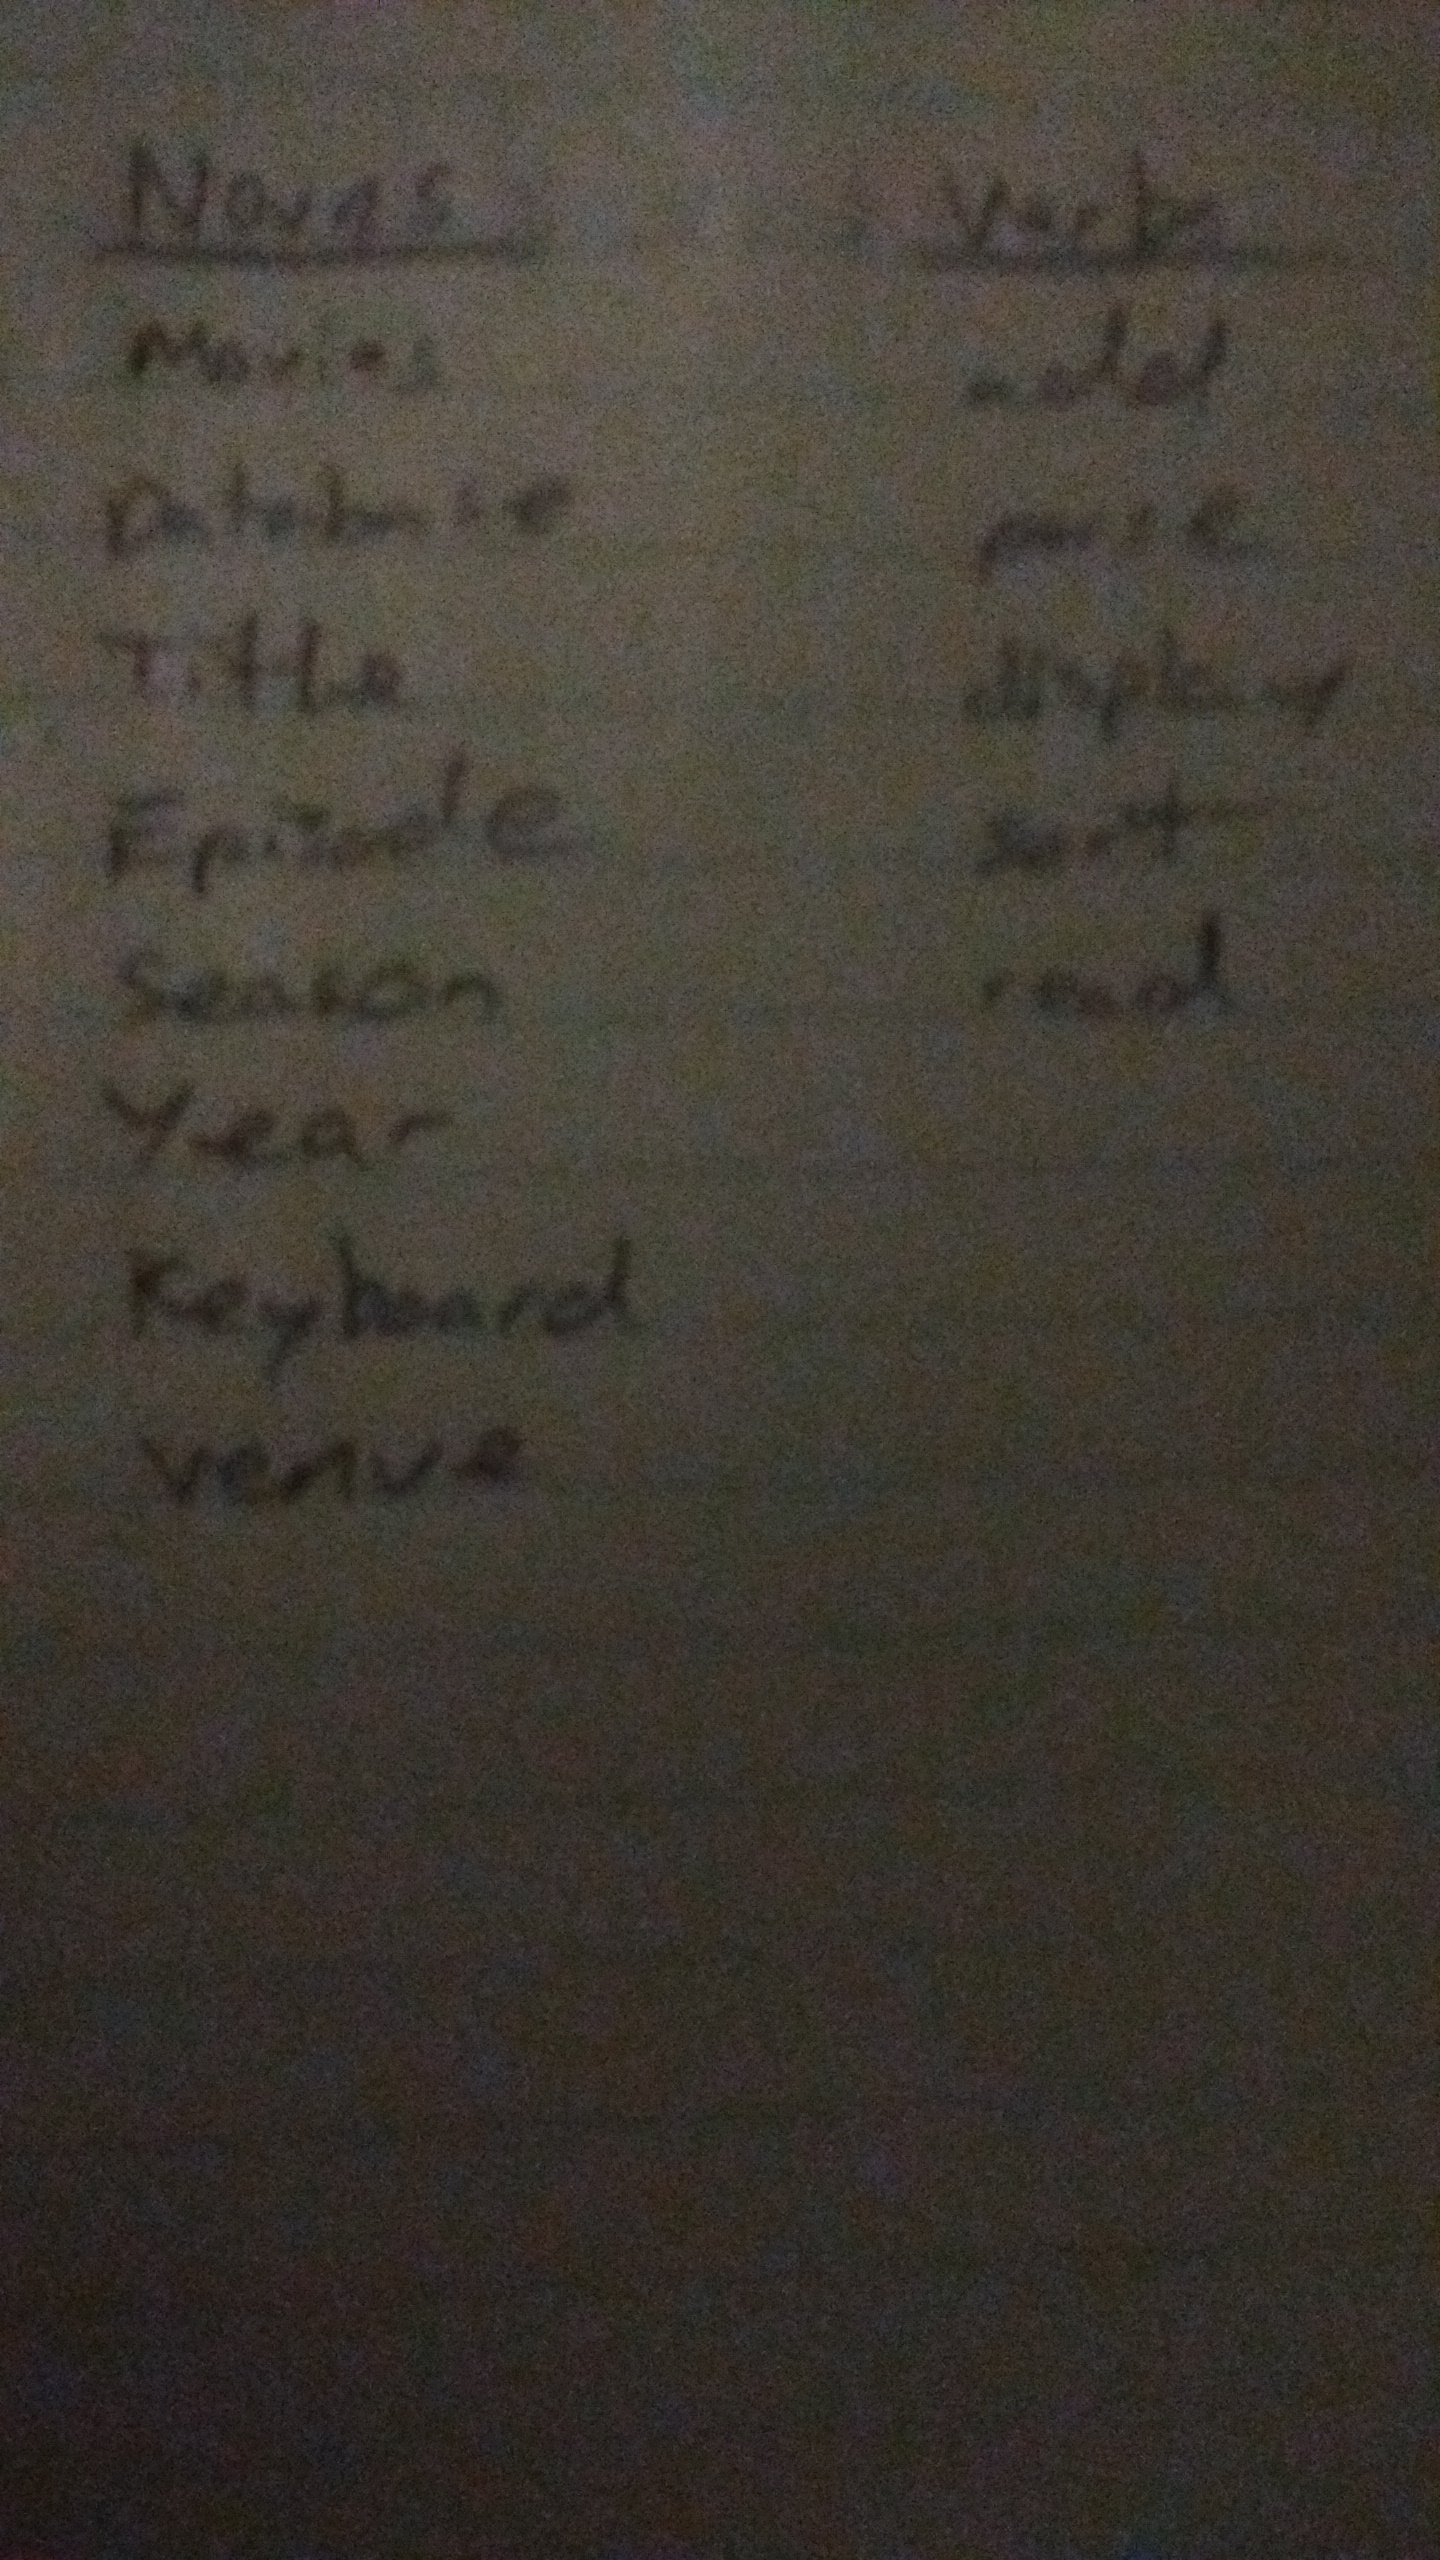 Nouns
Movies
Database
Title
Episode
Season
Year
Keyboard
venue
Verbs
model
parse
display
sort
read